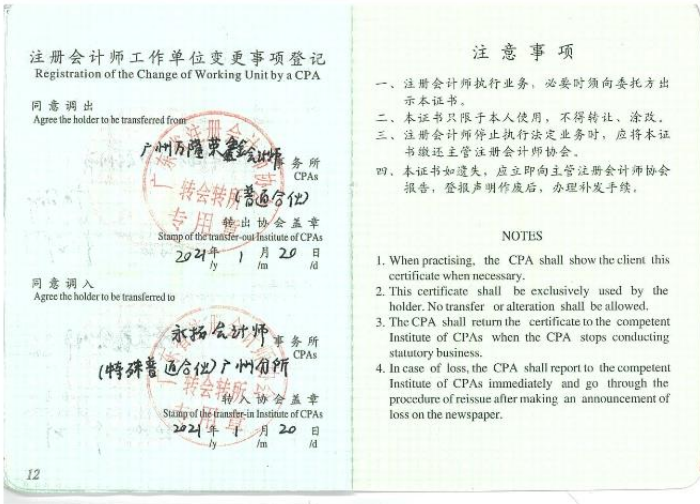 注册会计师工作单位变更事项登记
Registration of the Change of Working Unit by a CPA
同意调出
Agree the holder to be transferred from
广州万隆荣鑫会计师 事务所
CPAs
(普通合伙)
广东省注册会计师协会
转会转所
专用章
转出协会盖章
Stamp of the transfer-out Institute of CPAs
2021年 1月 20日
/y /m /d
同意调入
Agree the holder to be transferred to
永拓会计师 事务所
CPAs
(特殊普通合伙)广州分所
转会转所
专用章
转入协会盖章
Stamp of the transfer-in Institute of CPAs
2021年 1月 20日
/y /m /d
12
注意事项
一、注册会计师执行业务,必要时须向委托方出
示本证书。
二、本证书只限于本人使用,不得转让、涂改。
三、注册会计师停止执行法定业务时,应将本证
书缴还主管注册会计师协会。
四、本证书如遗失,应立即向主管注册会计师协会
报告,登报声明作废后,办理补发手续。
NOTES
1. When practising, the CPA shall show the client this
certificate when necessary.
2. This certificate shall be exclusively used by the
holder. No transfer or alteration shall be allowed.
3. The CPA shall return the certificate to the competent
Institute of CPAs when the CPA stops conducting
statutory business.
4. In case of loss, the CPA shall report to the competent
Institute of CPAs immediately and go through the
procedure of reissue after making an announcement of
loss on the newspaper.